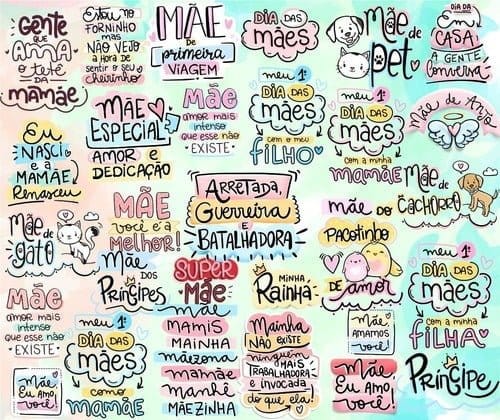 Gente
que
AMA
o tetê
DA
MAMÃE
Estou no
FORNINHO
mas
NÃO VEJO
A HORA DE
sentir o seu
cheirinho
MÃE
DE
primeira
VIAGEM
DIA DAS
mães
Mãe
de
pet
DIA DA
Em
CASA
A GENTE
conversa
Eu
NASCI
e a
MAMÃE
Renasceu
MÃE
ESPECIAL
AMOR E
DEDICAÇÃO
Mãe
AMOR mais
intenso
que esse não
EXISTE
meu 1º
DIA DAS
mães
com o meu
FILHO
meu 1º
DIA DAS
mães
com a minha
mamãe
Mãe de Anjo
Mãe
de
CACHORRO
Mãe
de
gato
MÃE
você é a
melhor!
ARRETADA,
Guerreira
E
BATALHADORA
mãe do
PACOTINHO
DE amor
Mãe
AMOR mais
intenso
que esse não
EXISTE
Mãe
DOS
Príncipes
SUPER
Mãe
MINHA
Rainha
meu 1º
DIA DAS
mães
com a minha
FILHA
meu 1º
DIA DAS
mães
como
mamãe
MÃE
MAMIS
MAINHA
mãezona
mamãe
manhê
MÃEZINHA
Mainha
NÃO EXISTE
ninguém
MAIS
TRABALHADORA
e invocada
do que ela!
MÃE
AMAMOS
você!
Mãe
Eu Amo,
você!
Mãe
EU AMO,
você!
Príncipe